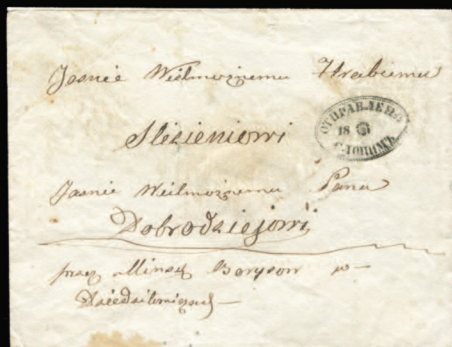 Jasnie Wielmożnemu Hrabiemu
Slizieniowi
ОТПРАВЛЕНО
18
СЛОНИМЪ
Jasnie Wielmożnemu Panu
Dobrodziejowi
przez Minsk Borysow w